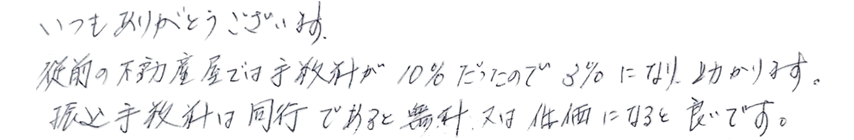 いつもありがとうございます.
従前の不動産屋では手数料が10%だったので3%になり助かります。
振込手数料は同行であると無料又は低価になると良いです。